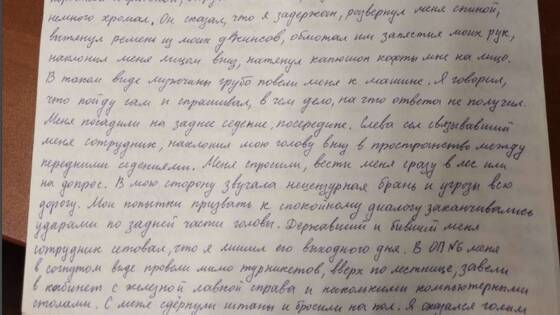 немного хромал. Он сказал, что я задержан, развернул меня спиной,
вытянул ремень из моих джинсов, обмотал им запястия моих рук,
наклонил меня лицом вниз, натянул капюшон кофты мне на лицо.
В таком виде мужчины грубо повели меня к машине. Я говорил,
что пойду сам и спрашивал, в чем дело, на что ответа не получил.
Меня посадили на заднее седение, посередине. Слева сел связывавший
меня сотрудник, наклонил мою голову вниз в пространство между
передними седениями. Меня спросили, вести меня сразу в лес или
на допрос. В мою сторону звучала нецензурная брань и угрозы всю
дорогу. Мои попытки призвать к спокойному диалогу заканчивались
ударами по задней части головы. Державший и бивший меня
сотрудник сетовал, что я лишил его выходного дня. В ОП №6 меня
в согнутом виде провели мимо турникетов, вверх по лестнице, завели
в кабинет с железной лавкой справа и несколькими компьютерными
столами. С меня сдёрнули штаны и бросили на пол. Я оказался голым